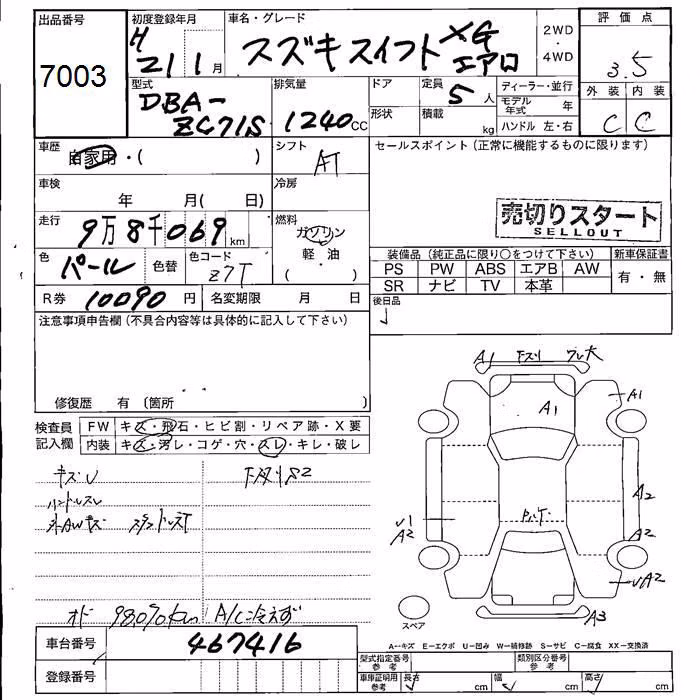 出品番号
7003
初度登録年月
H
21 1月
車名・グレード
スズキ スイフト XG
エアロ
2WD
・
4WD
評価点
3.5
外装 内装
C C
型式
DBA-
ZC71S
排気量
1240cc
ドア
形状
定員
5人
積載
kg
ディーラー・並行
モデル年式 年
ハンドル 左・右
車歴
自家用・( )
シフト
AT
セールスポイント(正常に機能するものに限ります)
車検
年 月( 日)
冷房
売切りスタート
SELLOUT
走行
9万8千069km
燃料
ガソリン
軽・油
( )
色
パール
色替
色コード
Z7T
装備品(純正品に限り〇をつけて下さい)
新車保証書
PS PW ABS エアB AW
有・無
SR ナビ TV 本革
R券 10090円
名変期限 月 日
後日品
注意事項申告欄(不具合内容等は具体的に記入して下さい)
修復歴 有 〔箇所 〕
検査員
記入欄
FW キズ・飛石・ヒビ割・リペア跡・X要
内装 キズ・汚レ・コゲ・穴・スレ・キレ・破レ
キズU
ハンドルスレ
外AWキズ
A/C冷えず
A1 下スリ ワレ大
A1
A1
A2
A2
U1
A2
UA2
A3
スペア
A…キズ E…エクボ U…凹み W…補修跡 S…サビ C…腐食 XX…交換済
車台番号 467416
登録番号
型式指定番号
参考
類別区分番号
参考
車庫証明用
参考
長さ cm
幅 cm
高さ cm